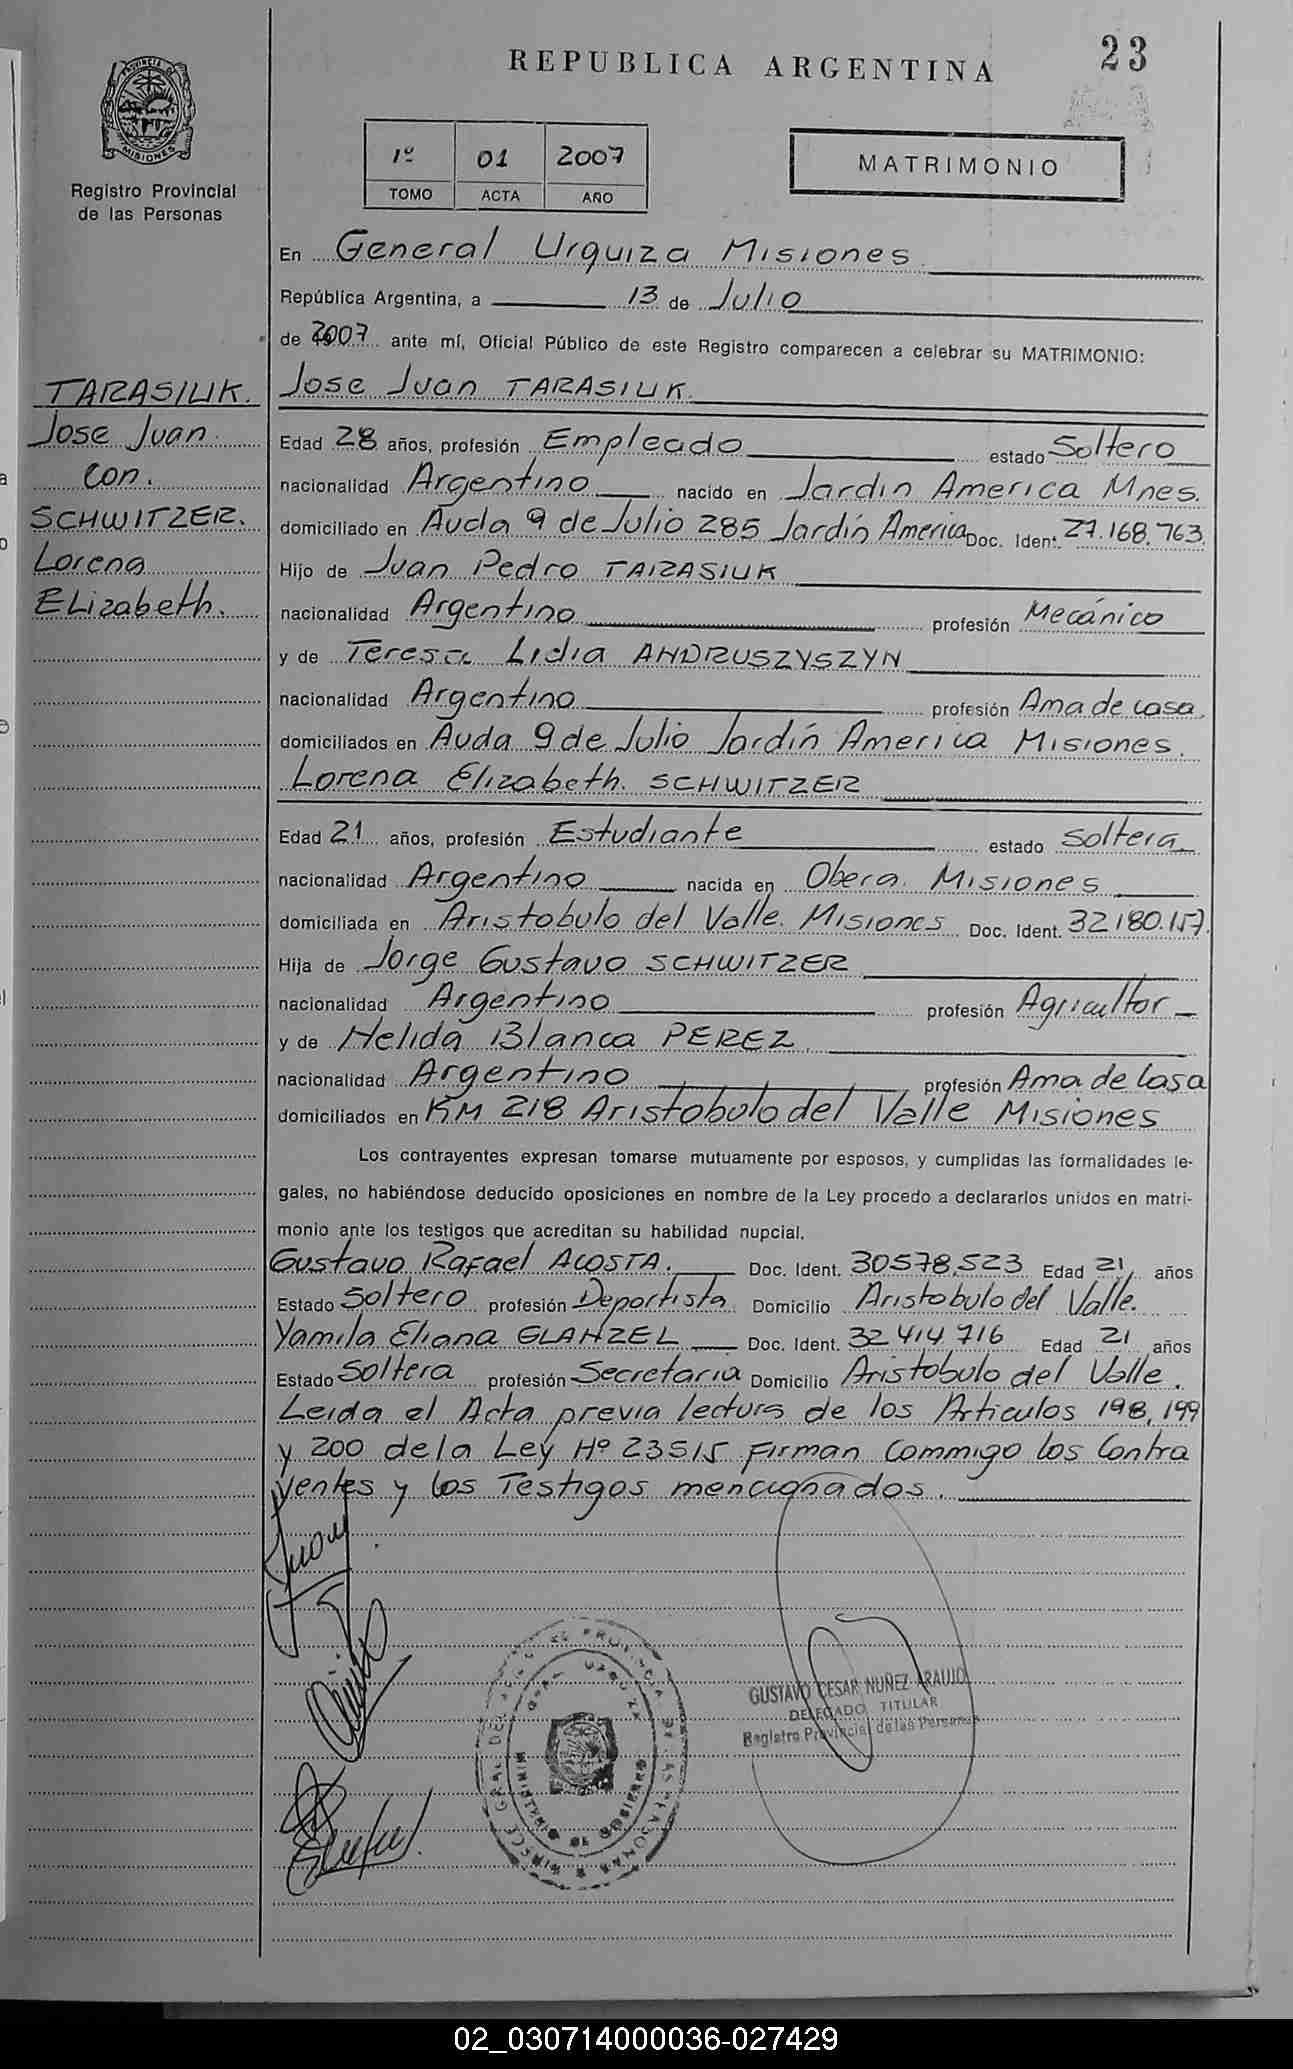 REPUBLICA ARGENTINA
23
PROVINCIA DE
MISIONES
Registro Provincial
de las Personas
1º 01 2007
TOMO ACTA AÑO
MATRIMONIO
En General Urquiza Misiones
República Argentina, a 13 de Julio
de 2007 ante mí, Oficial Público de este Registro comparecen a celebrar su MATRIMONIO:
TARASIUK.
Jose Juan
con.
SCHWITZER.
Lorena
ELizabeth.
Jose Juan TARASIUK.
Edad 28 años, profesión Empleado estado Soltero
nacionalidad Argentino nacido en Jardin America Mnes.
domiciliado en Avda 9 de Julio 285 Jardín America Doc. Ident. 27.168.763
Hijo de Juan Pedro TARASIUK
nacionalidad Argentino profesión Mecánico
y de Teresa Lidia ANDRUSZYSZYN
nacionalidad Argentino profesión Ama de casa
domiciliados en Avda 9 de Julio Jardín America Misiones.
Lorena Elizabeth. SCHWITZER
Edad 21 años, profesión Estudiante estado soltera
nacionalidad Argentino nacida en Obera Misiones
domiciliada en Aristobulo del Valle. Misiones Doc. Ident. 32180.157.
Hija de Jorge Gustavo SCHWITZER
nacionalidad Argentino profesión Agricultor
y de Nelida Blanca PEREZ
nacionalidad Argentino profesión Ama de Casa
domiciliados en KM 218 Aristobulo del Valle Misiones
Los contrayentes expresan tomarse mutuamente por esposos, y cumplidas las formalidades le-
gales, no habiéndose deducido oposiciones en nombre de la Ley procedo a declararlos unidos en matri-
monio ante los testigos que acreditan su habilidad nupcial.
Gustavo Rafael ACOSTA. Doc. Ident. 30578.523 Edad 21 años
Estado Soltero profesión Deportista Domicilio Aristobulo del Valle.
Yamila Eliana GLANZEL Doc. Ident. 32414716 Edad 21 años
Estado Soltera profesión Secretaria Domicilio Aristobulo del Valle.
Leida el Acta previa lectura de los Articulos 198, 199
y 200 de la Ley Nº 23515 Firman Commigo los Contra
yentes y los Testigos mencionados.
GUSTAVO CESAR NUÑEZ ARAUJO
DELEGADO TITULAR
Registro Provincial de las Personas
02_030714000036-027429